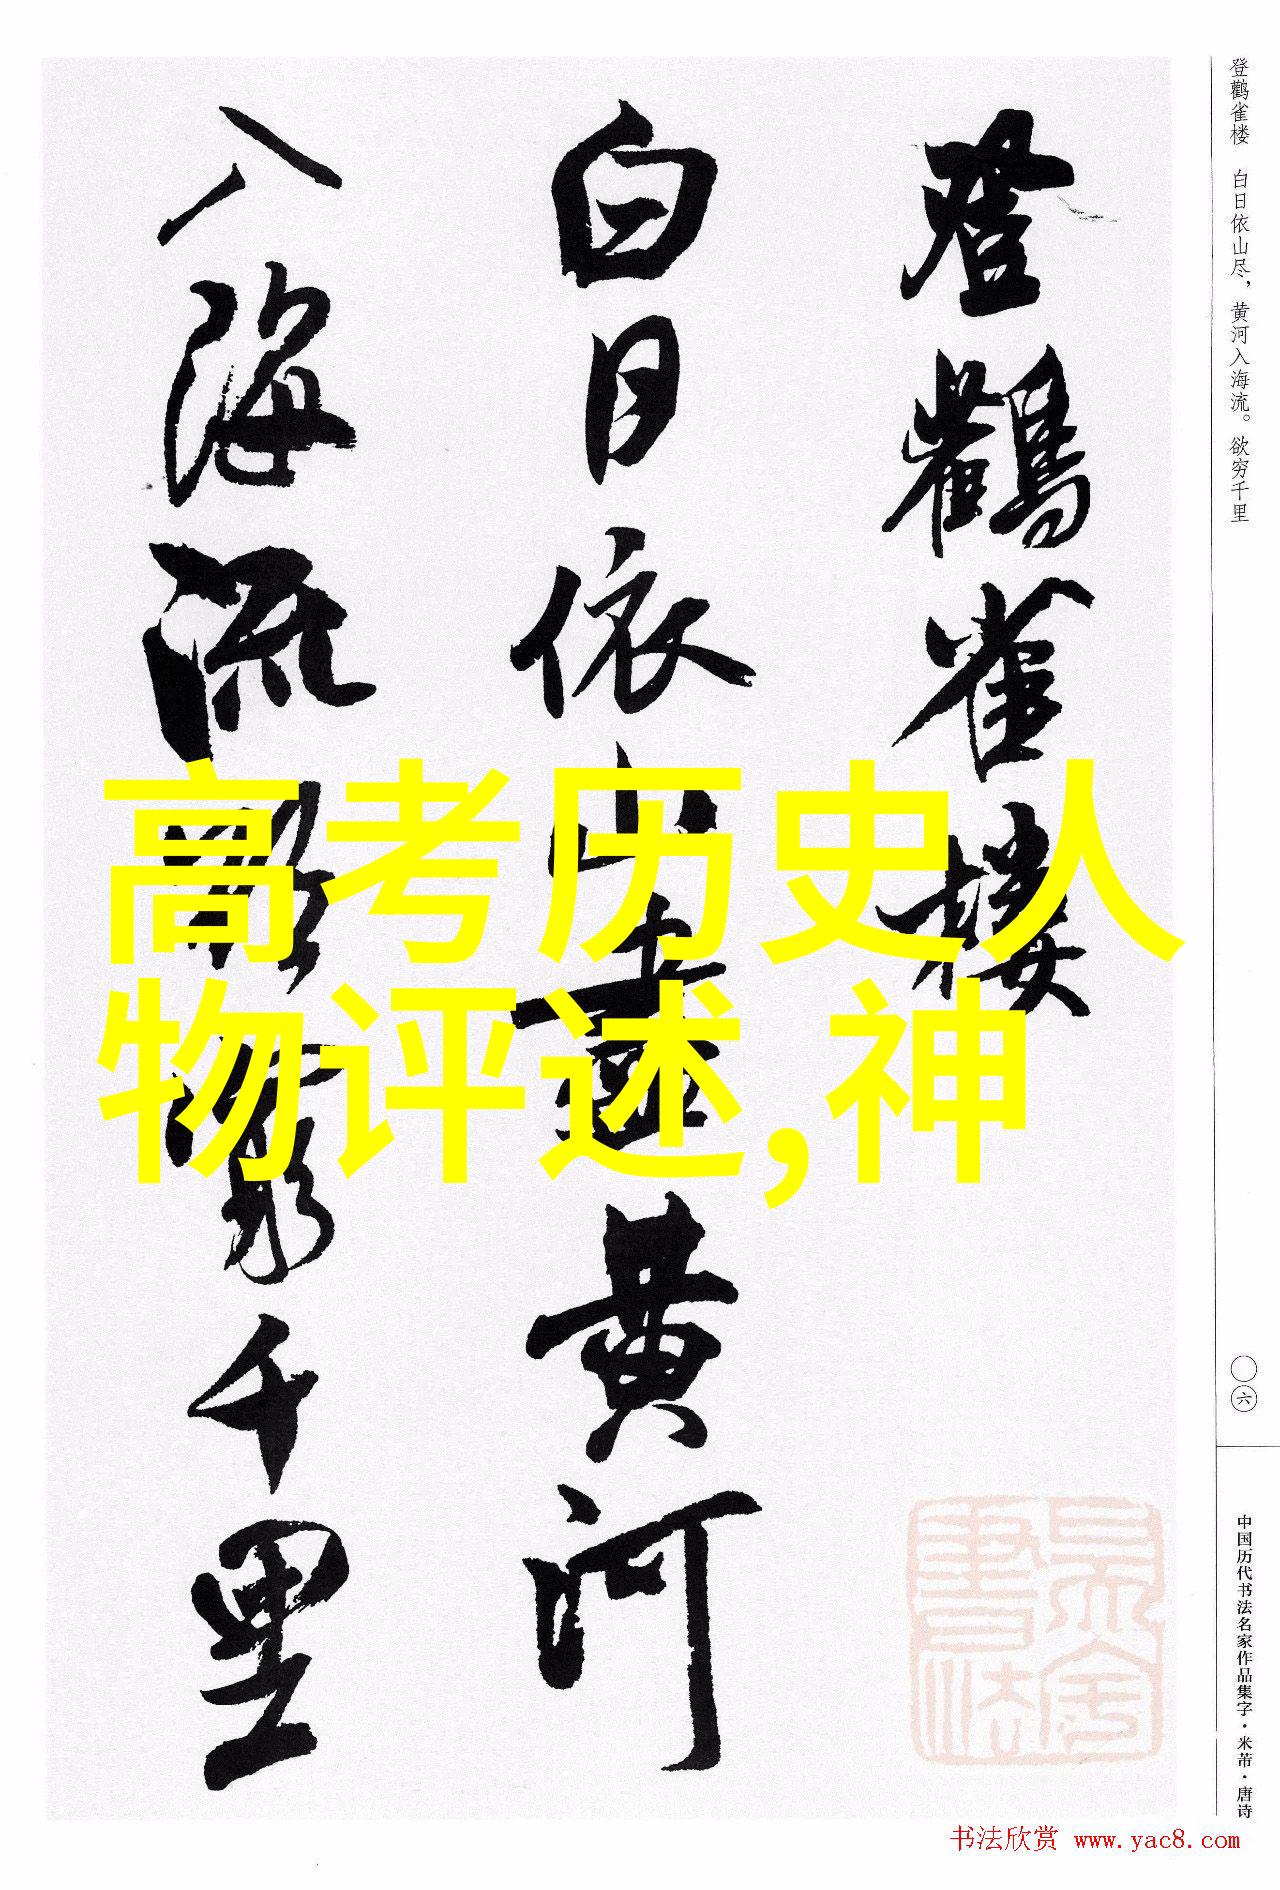 登鸛雀樓
白日依山盡黄河
入海流欲窮千里
高考历史人
物评述,神
登鹳雀楼 白日依山尽，黄河入海流。欲穷千里
〇六
中国历代书法名家作品集字·米芾·唐诗
书法欣赏 www.yac8.com